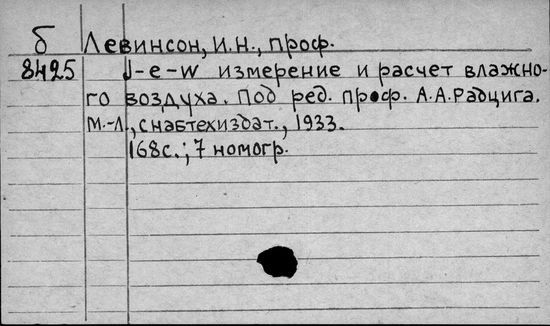 б Левинсон, И.Н., проф.
8425 J-e-w измерение и расчет влажно-
го воздуха. Под ред. проф. А.А.Радцига.
М.-Л., Снабтехиздат., 1933.
168с.; 7 номогр.